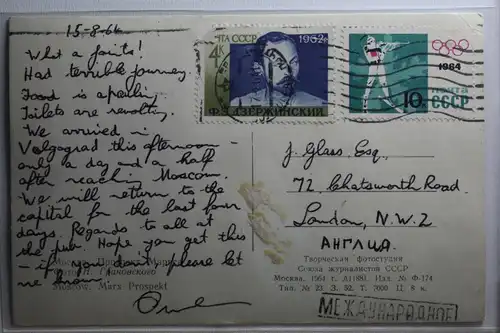 15-8-64
What a joints!
Had terrible journey.
Food is apealin,
Toilets are revolting.
We arrived in
Volgograd this afternoon –
only a day and a half
after reaching Moscow.
We will return to the
capital for the last four
days. Regards to all at
the pub. Hope you get this
– if you don't please let
me know!
ПОЧТА СССР 1962
4К
Ф.Э.ДЗЕРЖИНСКИЙ
1964
10К
ПОЧТА
СССР
J. Glass Esq.,
72 Chatsworth Road
London, N.W.2
АНГЛИЯ
Москва. Проспект Маркса
Фото Грановского
Moscow, Marx Prospekt
Творческая фотостудия
Союза журналистов СССР
Москва. 1964 г. Изд. № Ф-174
Тип. № 23 З. 52. Т. 7000 Ц 6 к.
МЕЖДУНАРОДНОЕ